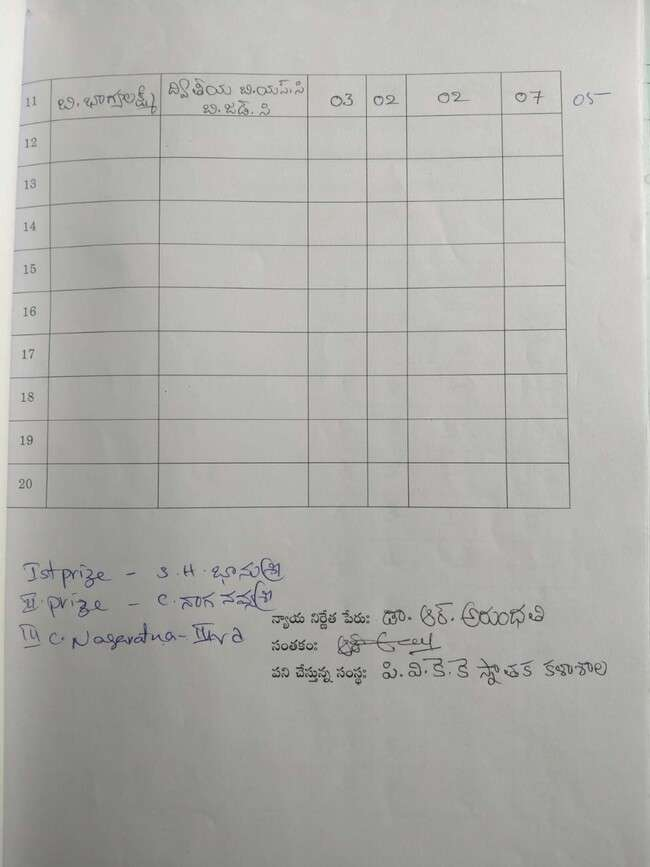 11 బి. భాగ్యలక్ష్మి ద్వితీయ బి.యస్.సి 03 02 02 07 05
బి. జడ్. సి
12
13
14
15
16
17
18
19
20
Ist prize - S. H. భానుశ్రీ
II. prize - C. నాగ నవ్యశ్రీ
III C. Nagaratna - IIIrd
న్యాయ నిర్ణేత పేరు: డా. ఆర్. అరుంధతి
సంతకం:
పని చేస్తున్న సంస్థ: పి. వి. కె. కె స్నాతక కళాశాల